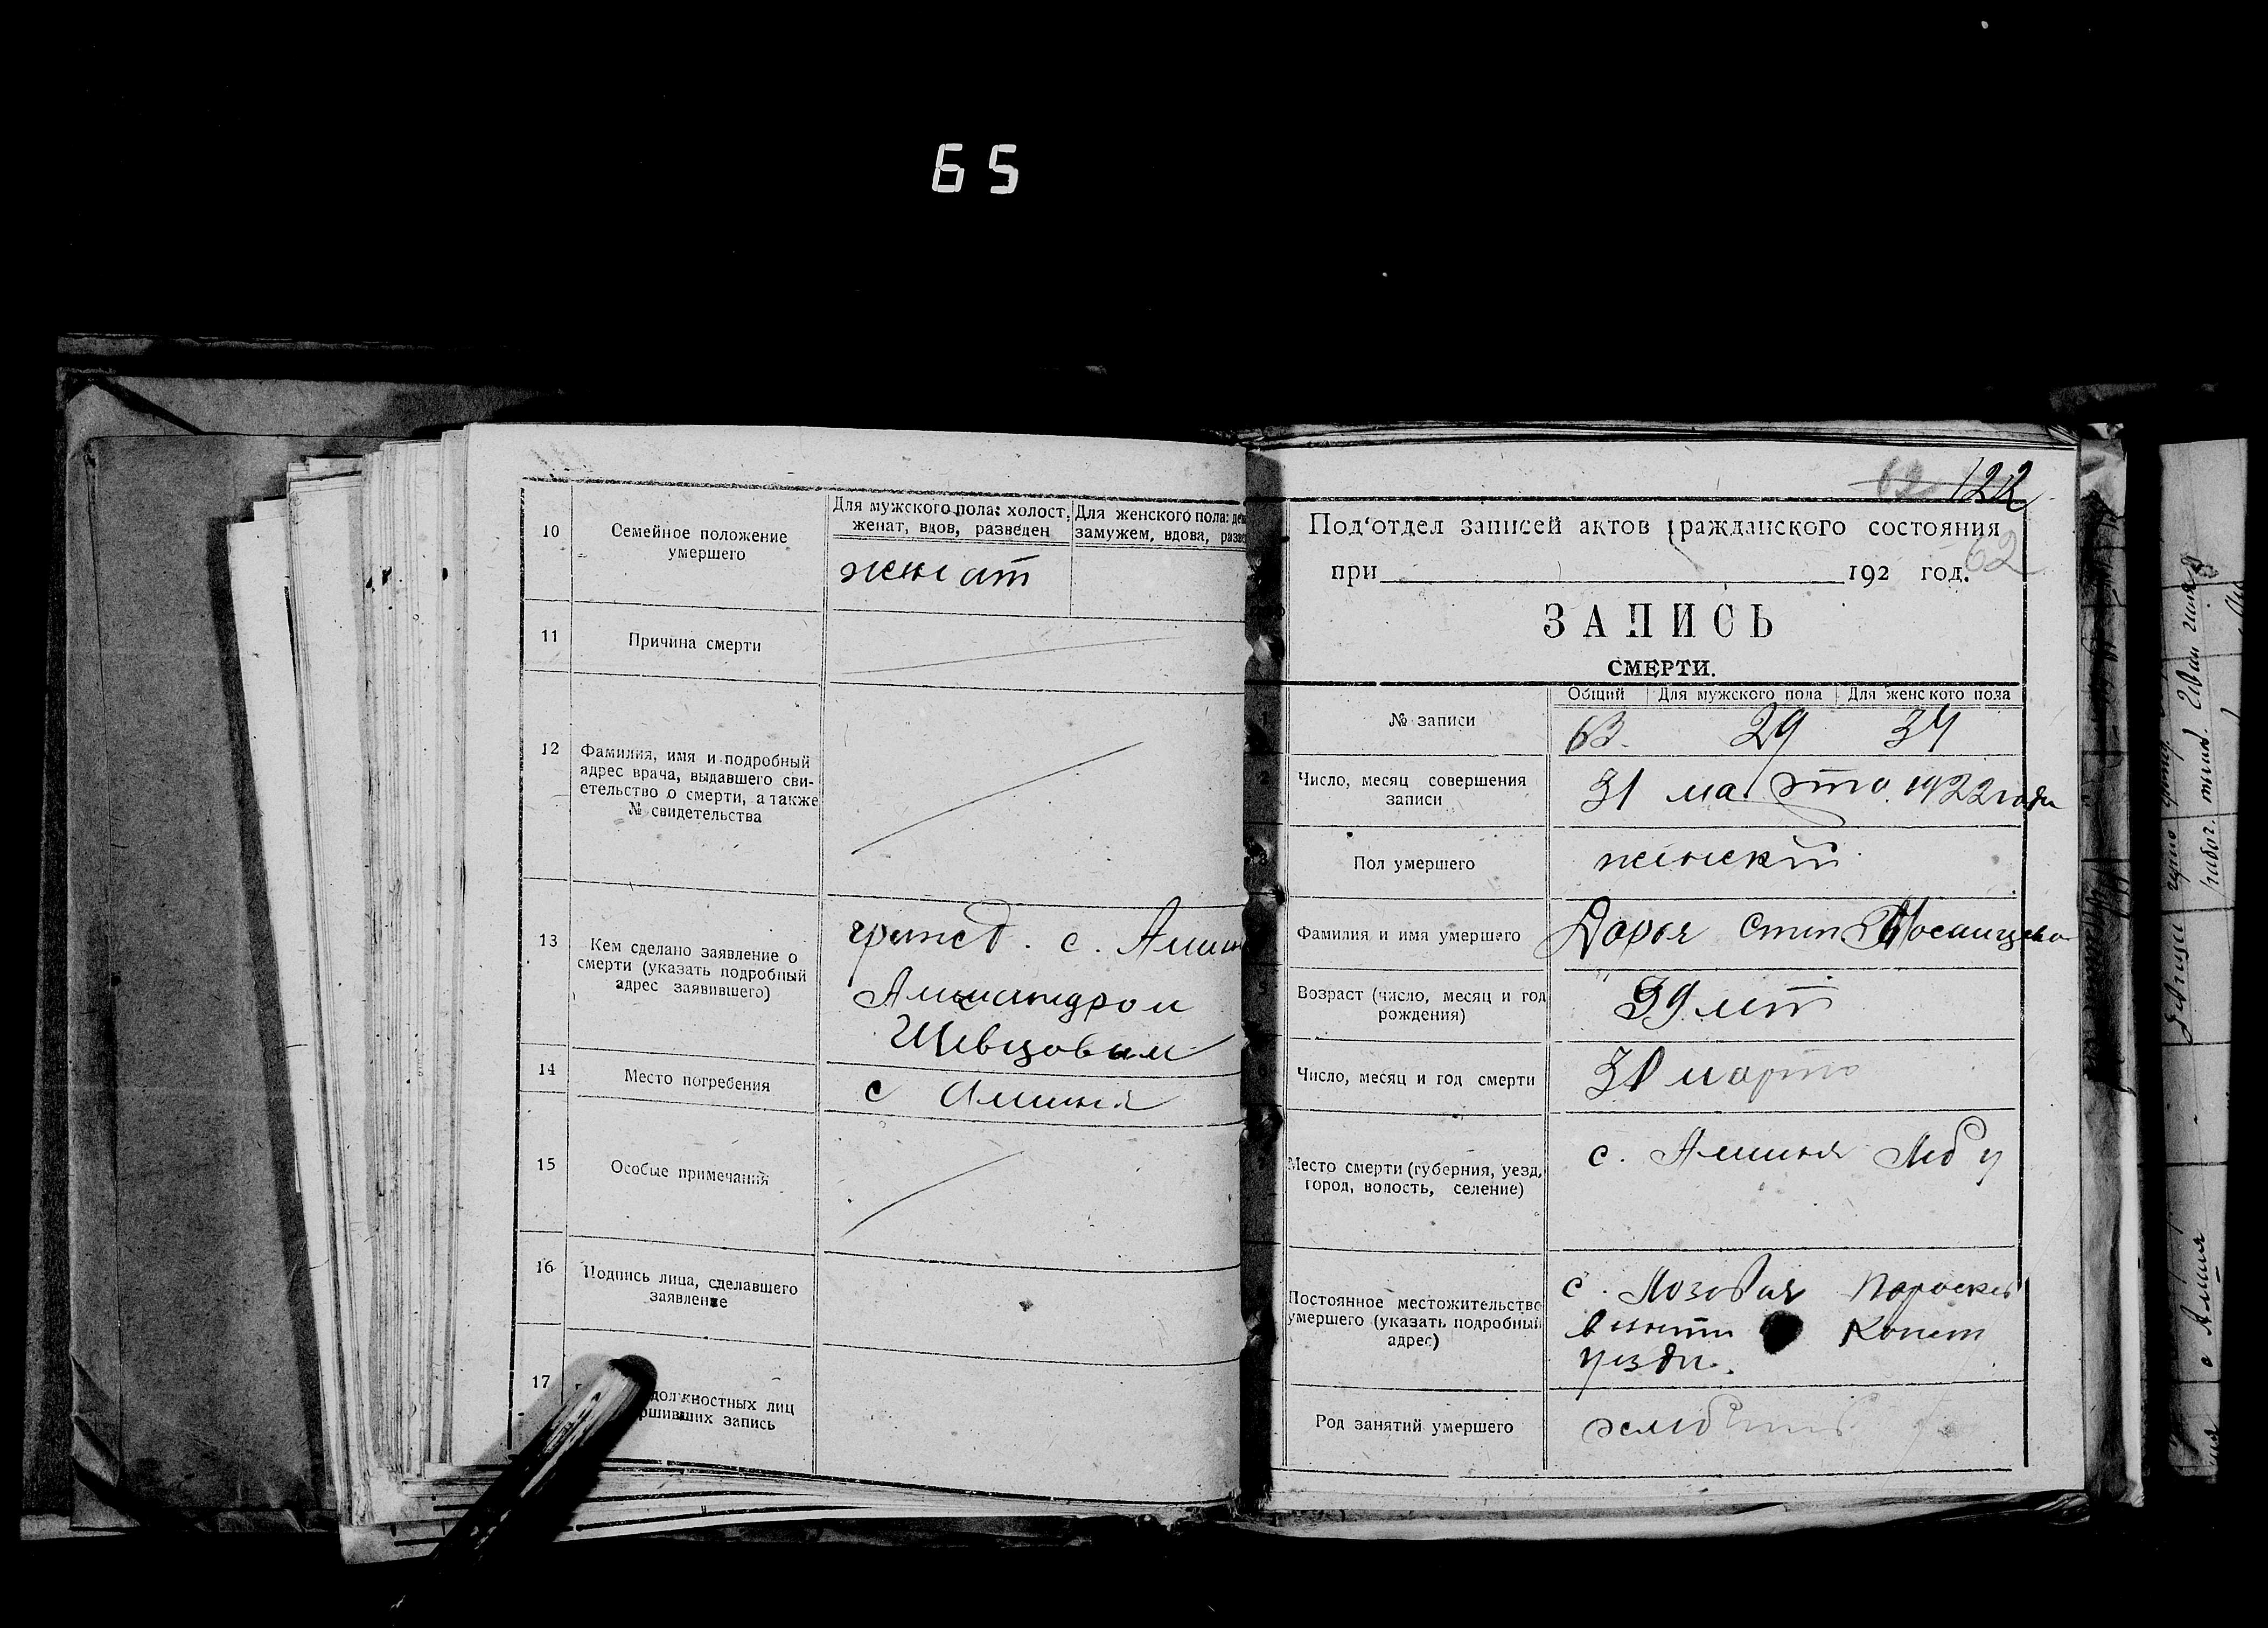 65
10
Семейное положение
умершего
Для мужского пола: холост,
женат, вдов, разведен
Для женского пола:
замужем, вдова,
женат
11
Причина смерти
12
Фамилия, имя и подробный
адрес врача, выдавшего сви-
етельство о смерти, а также
№ свидетельства
13
Кем сделано заявление о
смерти (указать подробный
адрес заявившего)
гражд. с.
Александром
Шевцовым
14
Место погребения
с
15
Особые примечания
16
Подпись лица, сделавшего
заявление
17
должностных лиц
запись
62 122
Под'отдел записей актов гражданского состояния
при 192 год.
62
ЗАПИСЬ
СМЕРТИ.
Общий Для мужского пола Для женского пола
№ записи
63. 29 34
Число, месяц совершения
записи
31 марта 1922 года
Пол умершего
женский
Фамилия и имя умершего
Дарья Степ
Возраст (число, месяц и год
рождения)
39 лет
Число, месяц и год смерти
марта
Место смерти (губерния, уезд,
город, волость, селение)
с.
Постоянное местожительство
умершего (указать подробный
адрес)
с. Лозовая
Конст
уезда.
Род занятий умершего